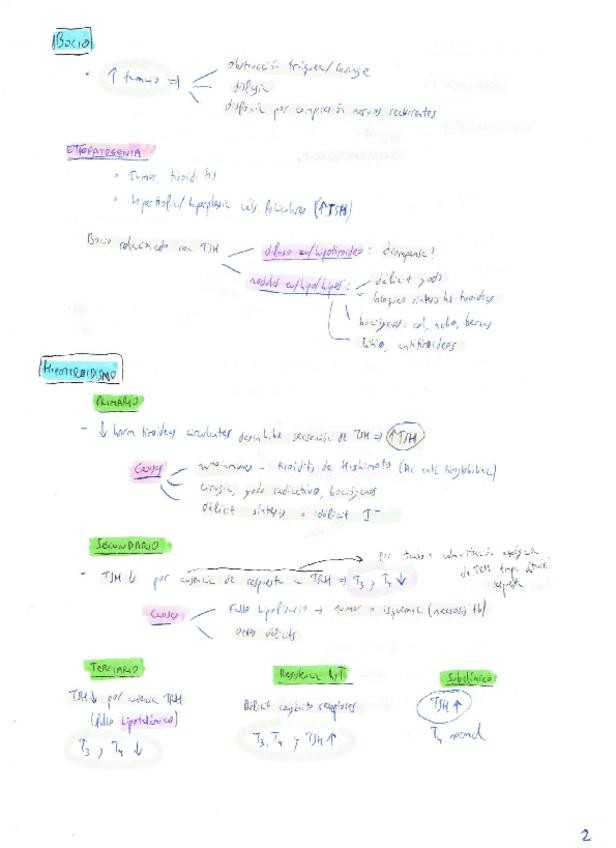 BOCIO
· ↑ tamaño ⇒
obstrucción tráquea/laringe
disfagia
disfonía por compresión nervios recurrentes
ETIOPATOGENIA
• Tumor, tiroiditis
• Hipertrofia/hiperplasia céls. foliculares (↑TSH)
Bocio relacionado con TSH
difuso eu/hipotiroideo: ¿compensa?
nódulos eu/hipo/hiper:
déficit yodo
bloqueo síntesis hs tiroideas
bociógenos: col, nabo, berzas
litio, antitiroideos
HIPOTIROIDISMO
PRIMARIO
- ↓ horm tiroideas circulantes desinhibe secreción de TSH ⇒ ↑TSH
Causas
autoinmunes - tiroiditis de Hashimoto (Ac anti tiroglobulina)
cirugía, yodo radiactivo, bociógenos
déficit síntesis o déficit I⁻
SECUNDARIO
- TSH ↓ por ausencia de respuesta a TRH ⇒ T₃ y T₄ ↓
por tanto
de TRH
respuesta
Causas
Fallo hipofisario → tumor o isquemia (necrosis) hf
Otros déficits
TERCIARIO
TSH↓ por ausencia TRH
(fallo hipotalámico)
T₃ y T₄ ↓
Resistencia hT
Déficit congénito receptores
T₃, T₄ y TSH ↑
Subclínico
TSH ↑
T₄ normal
2